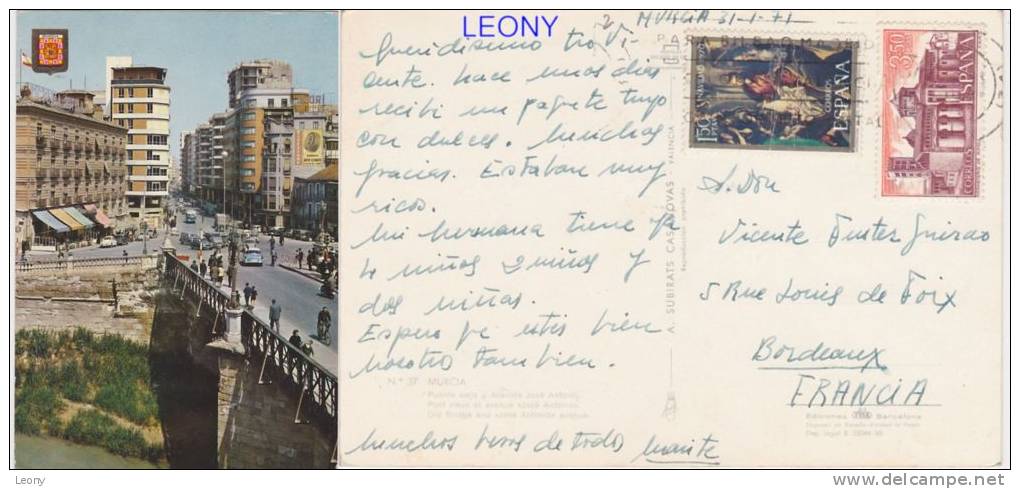 LEONY
MURCIA 31-1-71
Queridisimo tio Vi-
cente. hace unos dias
recibi un paquete tuyo
con dulces. Muchas
gracias. Estaban muy
ricos.
Mi hermana tiene ya
4 niños 2 niños y
dos niñas.
Espero que esteis bien
nosotros tambien.
muchos besos de todos
Nº 37 MURCIA
Puente viejo y Avenida José Antonio
Pont vieux et avenue José Antonio
Old Bridge and José Antonio avenue
A. SUBIRATS CASANOVAS VALENCIA
1,50
CORREOS
ESPAÑA
3,50
ESPAÑA
CORREOS
S. Don
Vicente Fuster
5 Rue Louis de Foix
Bordeaux
FRANCIA
Ediciones Barcelona
Leony
http://www.delcampe.net